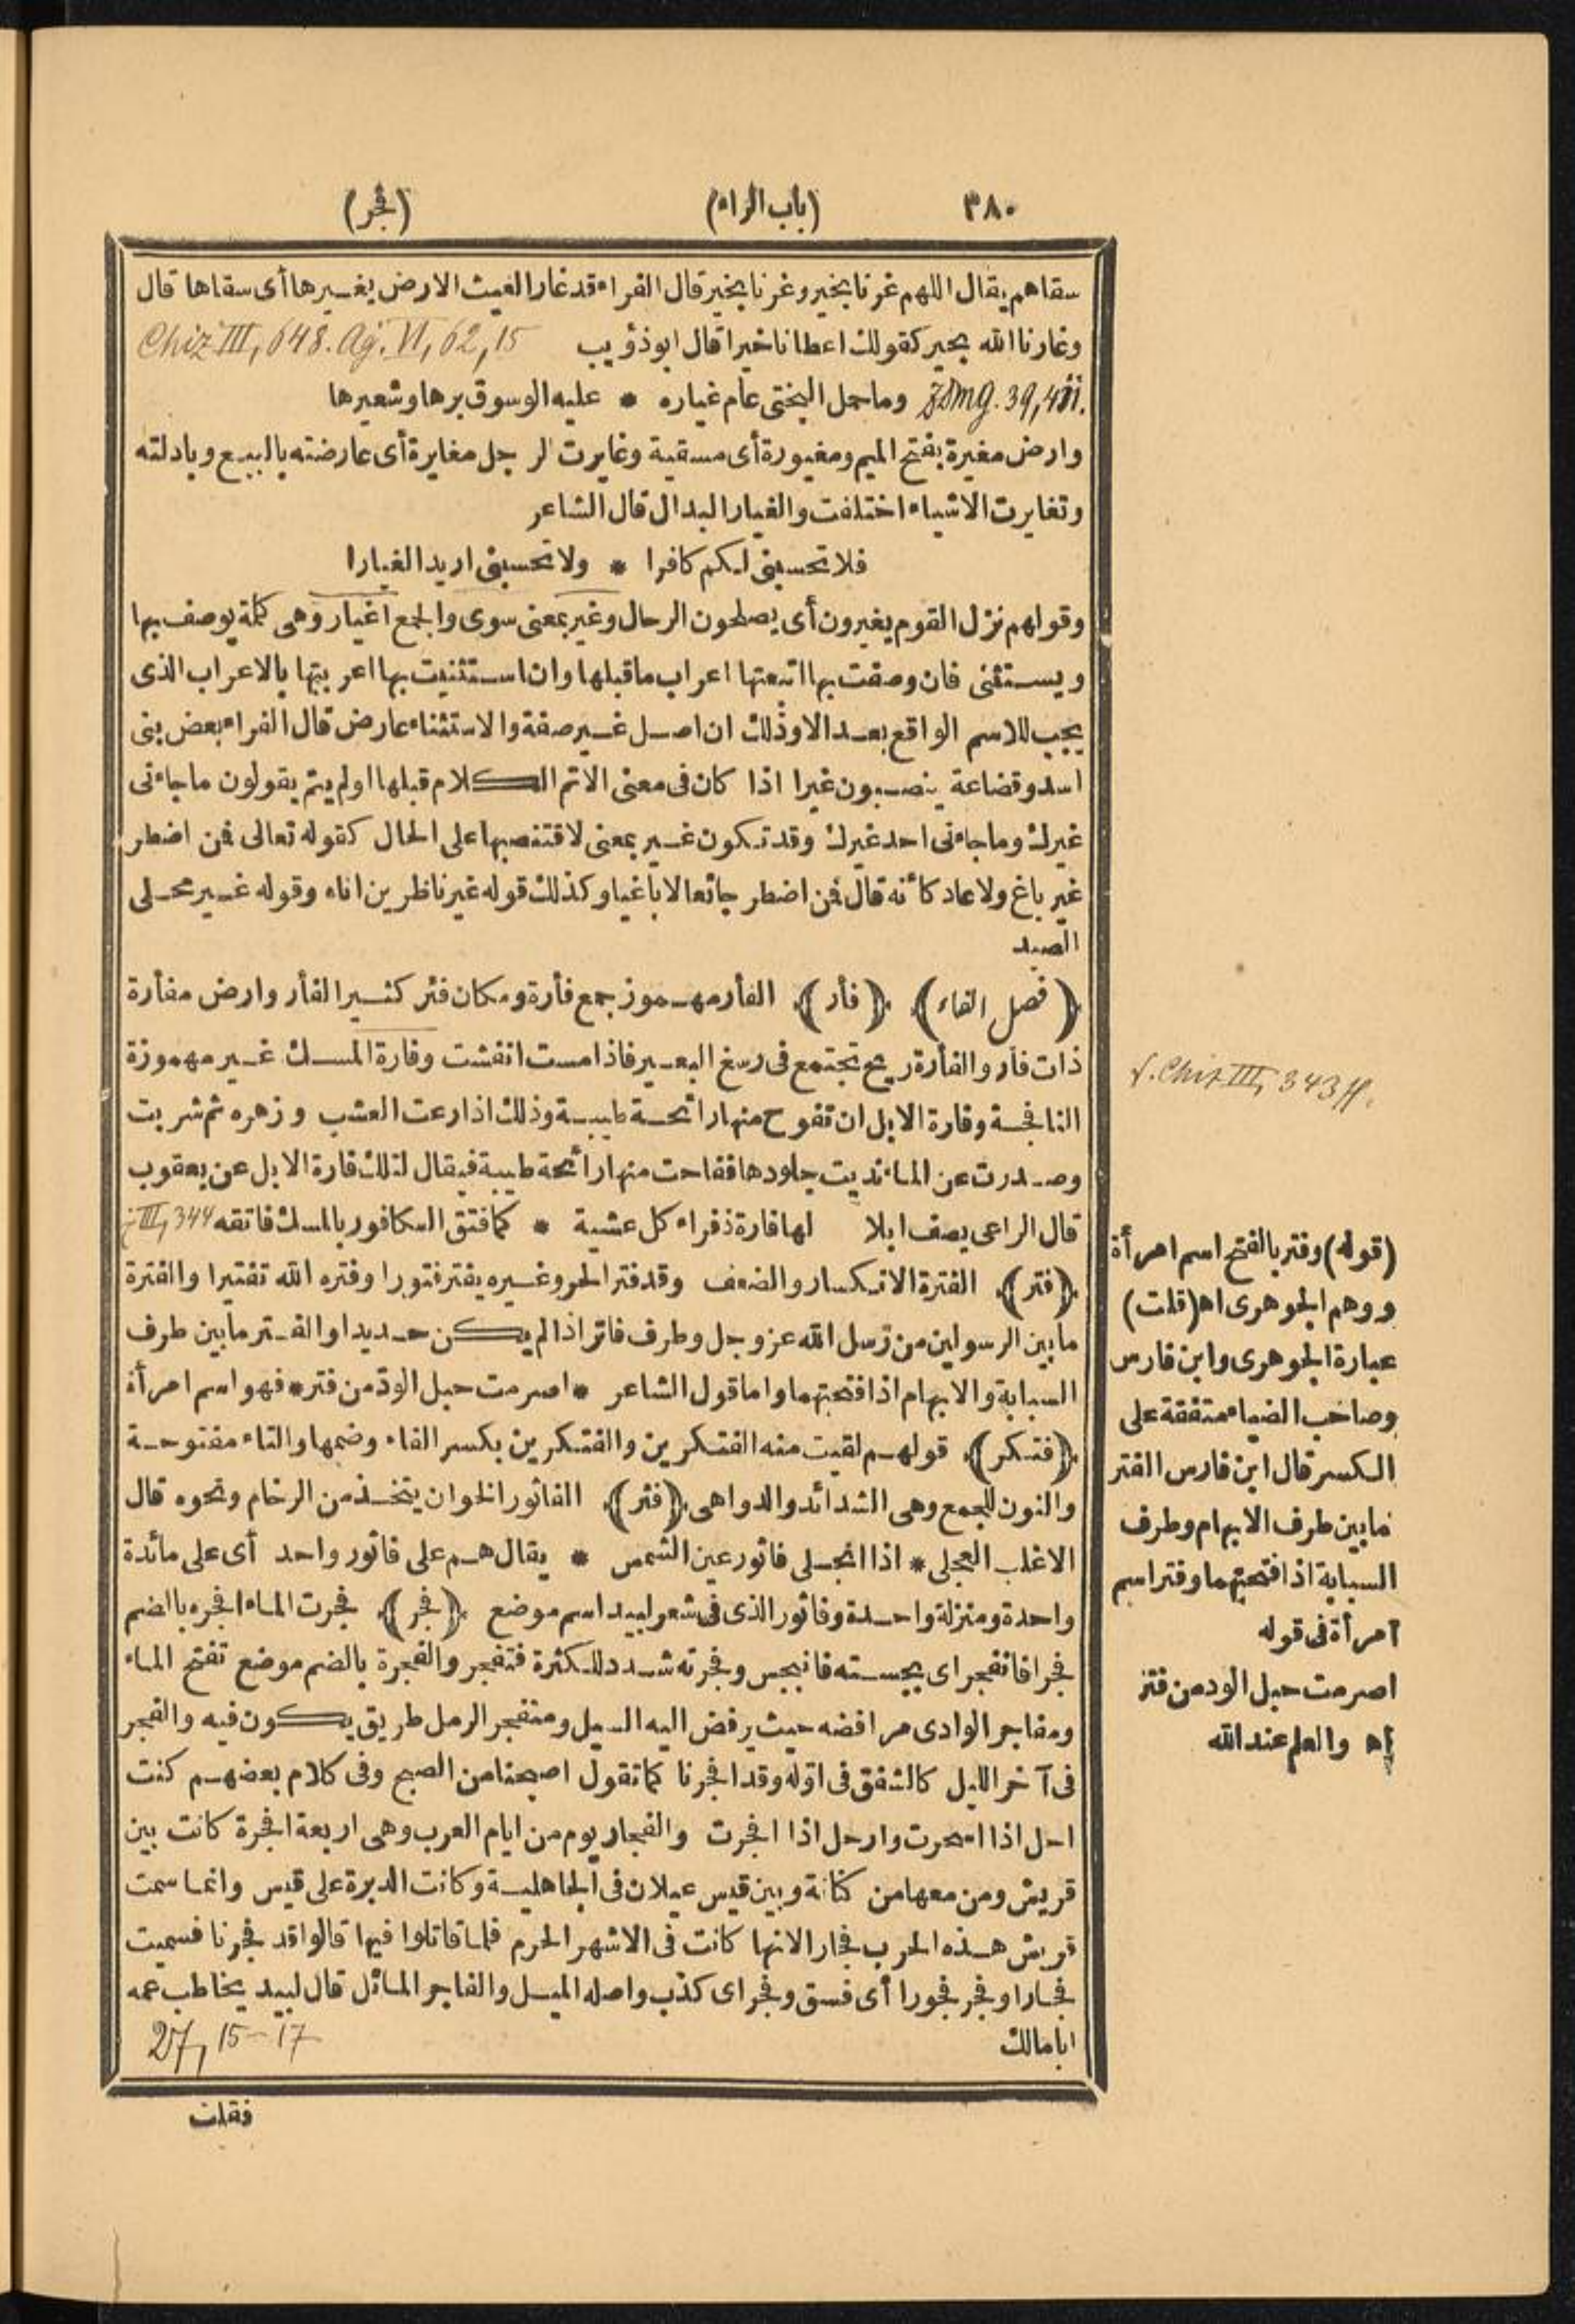 ٣٨٠ (باب الراء) (فجر)
سقاهم يقال اللهم غرنا بخير وغرنا بخير قال الفراء قد غار الغيث الارض يغيرها أى سقاها قال
وغارنا الله بخير كقولك اعطانا خيرا قال ابوذؤيب Chiz III, 648. Ag. VI, 62, 15
ZDMG. 39, وماحمل البختى عام غياره * عليه الوسوق برها وشعيرها
وارض مغيرة بفتح الميم ومغيورة أى مسقية وغايرت الرجل مغايرة أى عارضته بالبيع وبادلته
وتغايرت الاشياء اختلفت والغيار البدال قال الشاعر
فلا تحسبنى لكم كافرا * ولا تحسبنى اريد الغيارا
وقولهم نزل القوم يغيرون أى يصلحون الرحال وغير بمعنى سوى والجمع اغيار وهى كلمة يوصف بها
ويستثنى فان وصفت بها اتبعتها اعراب ماقبلها وان استثنيت بها اعربتها بالاعراب الذى
يجب للاسم الواقع بعد الا وذلك ان اصل غير صفة والاستثناء عارض قال الفراء بعض بنى
اسد وقضاعة ينصبون غيرا اذا كان فى معنى الا تم الكلام قبلها اولم يتم يقولون ماجاءنى
غيرك وماجاءنى احد غيرك وقد تكون غير بمعنى لا فتنصبها على الحال كقوله تعالى فمن اضطر
غير باغ ولا عاد كأنه قال فمن اضطر جائعا لا باغيا وكذلك قوله غير ناظرين اناه وقوله غير محلى
الصيد
﴿فصل الفاء﴾ ﴿فأر﴾ الفأر مهموز جمع فأرة ومكان فئر كثير الفأر وارض مفأرة
ذات فأر والفأرة ريح تجتمع فى رسغ البعير فاذا مست انفشت وفارة المسك غير مهموزة
النافجة وفارة الابل ان تفوح منها رائحة طيبة وذلك اذا رعت العشب وزهره ثم شربت
وصدرت عن الماء نديت جلودها ففاحت منها رائحة طيبة فيقال لتلك فارة الابل عن يعقوب
قال الراعى يصف ابلا لها فارة ذفراء كل عشية * كما فتق الكافور بالمسك فاتقه III, 344
﴿فتر﴾ الفترة الانكسار والضعف وقد فتر الحر وغيره يفتر فتورا وفتره الله تفتيرا والفترة
مابين الرسولين من رسل الله عز وجل وطرف فاتر اذا لم يكن حديدا والفتر مابين طرف
السبابة والابهام اذا فتحتهما واما قول الشاعر * اصرمت حبل الود من فتر * فهو اسم امرأة
﴿فتكر﴾ قولهم لقيت منه الفتكرين والفتكرين بكسر الفاء وضمها والتاء مفتوحة
والنون للجمع وهى الشدائد والدواهى ﴿فثر﴾ الفاثور الخوان يتخذ من الرخام ونحوه قال
الاغلب العجلى * اذا انجلى فاثور عين الشمس * يقال هم على فاثور واحد أى على مائدة
واحدة ومنزلة واحدة وفاثور الذى فى شعر لبيد اسم موضع ﴿فجر﴾ فجرت الماء افجره بالضم
فجرا فانفجر اى بجسته فانبجس وفجرته شدد للكثرة فتفجر والفجرة بالضم موضع تفتح الماء
ومفاجر الوادى مرافضه حيث يرفض اليه السيل ومنفجر الرمل طريق يكون فيه والفجر
فى آخر الليل كالشفق فى اوله وقد افجرنا كما تقول اصبحنا من الصبح وفى كلام بعضهم كنت
احل اذا اسحرت وارحل اذا افجرت والفجار يوم من ايام العرب وهى اربعة افجرة كانت بين
قريش ومن معها من كنانة وبين قيس عيلان فى الجاهلية وكانت الدبرة على قيس وانما سمت
قريش هذه الحرب فجارا لانها كانت فى الاشهر الحرم فلما قاتلوا فيها قالوا قد فجرنا فسميت
فجارا وفجر فجورا أى فسق وفجر اى كذب واصله الميل والفاجر المائل قال لبيد يخاطب عمه
ابا مالك 27, 15-17
فقلت
v. Chiz III, 343 ff.
(قوله) وفتر بالفتح اسم امرأة
ووهم الجوهرى اه (قلت)
عبارة الجوهرى وابن فارس
وصاحب الضياء متفقة على
الكسر قال ابن فارس الفتر
مابين طرف الابهام وطرف
السبابة اذا فتحتهما وفتر اسم
امرأة فى قوله
اصرمت حبل الود من فتر
اه والعلم عند الله